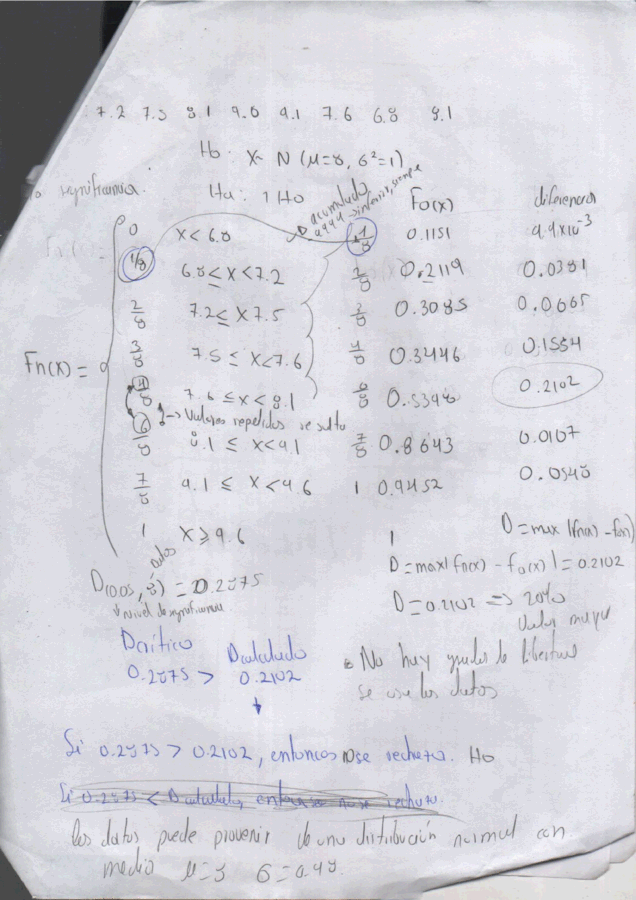 7.2 7.5 8.1 9.6 9.1 7.6 6.8 8.1
Ho: X~ N (μ=8, σ²=1)
significancia. Ha: ¬ Ho
acumulado
siempre
Fo(x) diferencia
0 x < 6.8 1/8 0.1151 9.9x10⁻³
1/8 6.8 ≤ x < 7.2 2/8 0.2119 0.0381
2/8 7.2 ≤ x 7.5 3/8 0.3085 0.0665
3/8 7.5 ≤ x < 7.6 4/8 0.3446 0.1554
Fn(x) =
4/8 7.6 ≤ x < 8.1 6/8 0.5398 0.2102
Valores repetidos se salta
6/8 8.1 ≤ x < 9.1 7/8 0.8643 0.0107
7/8 9.1 ≤ x < 9.6 1 0.9452 0.0548
1 x ≥ 9.6 1 D = max |fn(x) - fo(x)|
datos
D = max | fn(x) - fo(x) | = 0.2102
D(0.05, 8) = 0.2875
nivel de significancia
D = 0.2102 => 20%
Valor mayor
Dcrítico Dcalculado
0.2875 > 0.2102
No hay grados de libertad
se usa los datos
Si 0.2875 > 0.2102, entonces no se rechaza. Ho
Si 0.2875 < Dcalculado, entonces no se rechaza.
los datos puede provenir de una distribución normal con
media μ=8 σ=